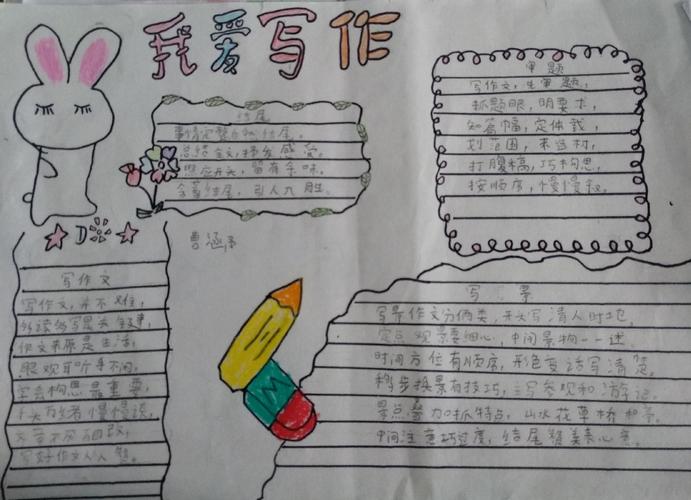 我爱写作
结尾
事情完整自然结尾。
总结全文抒发感受。
照应开头，留有余味。
含蓄结尾，引人入胜。
审题
写作文，先审题，
抓题眼，明要求，
知篇幅，定体裁，
划范围，来选材，
打腹稿，巧构思，
按顺序，慢慢叙。
曹涵
写作文
写作文，并不难，
多读多写是关键，
作文来源是生活，
眼观耳听手不闲，
学会构思最重要，
慢慢谈，
写好作文人人
写景
写景作文分两类，开头写清人时地，
定点观景要细心，中间景物一一述。
时间方位有顺序，形色变话写清楚。
移步换景有技巧，写参观和游记。
景点 加抓特点，山水花草桥和亭。
中间注意巧过度，结尾赞美